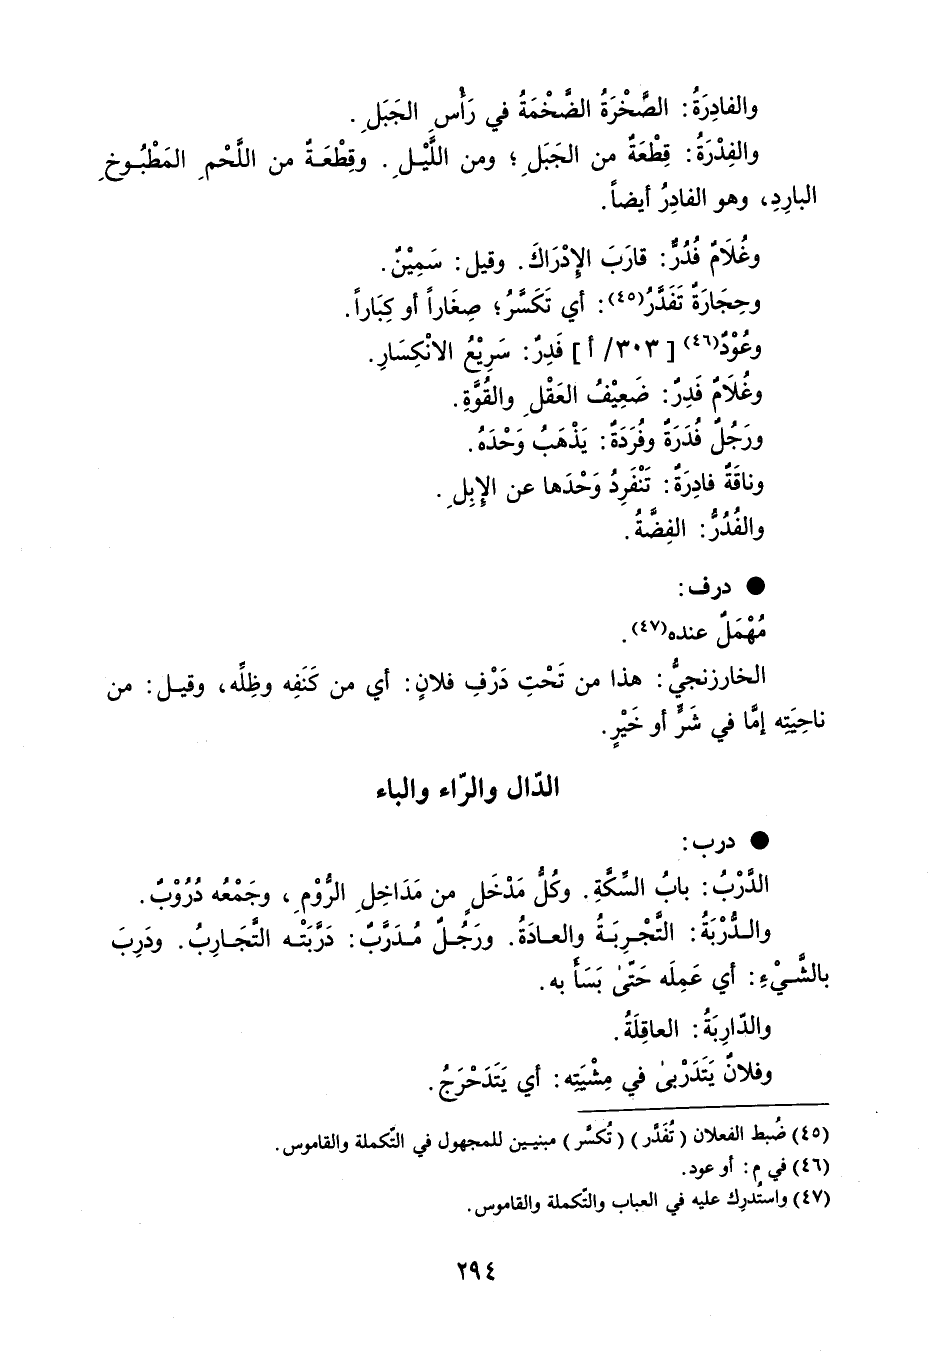 والفادِرَةُ: الصَّخْرَةُ الضَّخْمَةُ في رَأْسِ الجَبَلِ.
والفِدْرَةُ: قِطْعَةٌ من الجَبَلِ؛ ومن اللَّيْلِ. وقِطْعَةٌ من اللَّحْمِ المَطْبُوخِ
البارِدِ، وهو الفادِرُ أيضاً.
وغُلَامٌ فُدُرٌّ: قارَبَ الإِدْرَاكَ. وقيل: سَمِيْنٌ.
وحِجَارَةٌ تَفَدَّرُ(٤٥): أي تَكَسَّرُ؛ صِغَاراً أو كِبَاراً.
وعُوْدٌ(٤٦) [٣٠٣/ أ] فَدِرٌ: سَرِيْعُ الانْكِسَارِ.
وغُلَامٌ فَدِرٌ: ضَعِيْفُ العَقْلِ والقُوَّةِ.
ورَجُلٌ فُدَرَةٌ وفُرَدَةٌ: يَذْهَبُ وَحْدَهُ.
وناقَةٌ فادِرَةٌ: تَنْفَرِدُ وَحْدَها عن الإِبِلِ.
والفُدُرُّ: الفِضَّةُ.
● درف:
مُهْمَلٌ عنده(٤٧).
الخارزنجيُّ: هذا من تَحْتِ دَرْفِ فلانٍ: أي من كَنَفِه وظِلِّه، وقيل: من
ناحِيَتِه إمَّا في شَرٍّ أو خَيْرٍ.
الدّال والرّاء والباء
● درب:
الدَّرْبُ: بابُ السِّكَّةِ. وكُلُّ مَدْخَلٍ من مَدَاخِلِ الرُّوْمِ، وجَمْعُه دُرُوْبٌ.
والدُّرْبَةُ: التَّجْرِبَةُ والعادَةُ. ورَجُلٌ مُدَرَّبٌ: دَرَّبَتْه التَّجَارِبُ. ودَرِبَ
بالشَّيْءِ: أي عَمِلَه حَتّىٰ بَسَأَ به.
والدّارِبَةُ: العاقِلَةُ.
وفلانٌ يَتَدَرْبىٰ في مِشْيَتِه: أي يَتَدَحْرَجُ.
(٤٥) ضُبط الفعلان (تُفَدَّر) (تُكسَّر) مبنيين للمجهول في التّكملة والقاموس.
(٤٦) في م: أو عود.
(٤٧) واستُدرِك عليه في العباب والتّكملة والقاموس.
٢٩٤